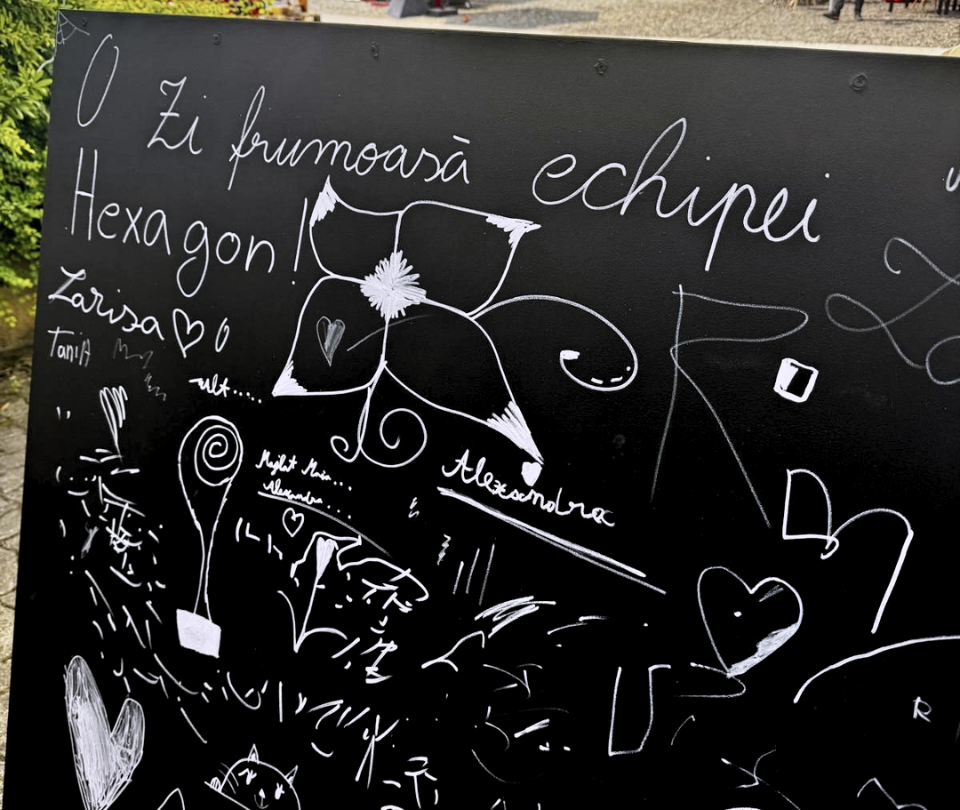 O Zi frumoasă echipei
Hexagon!
Larisa
Tania
ult.....
Alexandra
Alexsandra
R
R